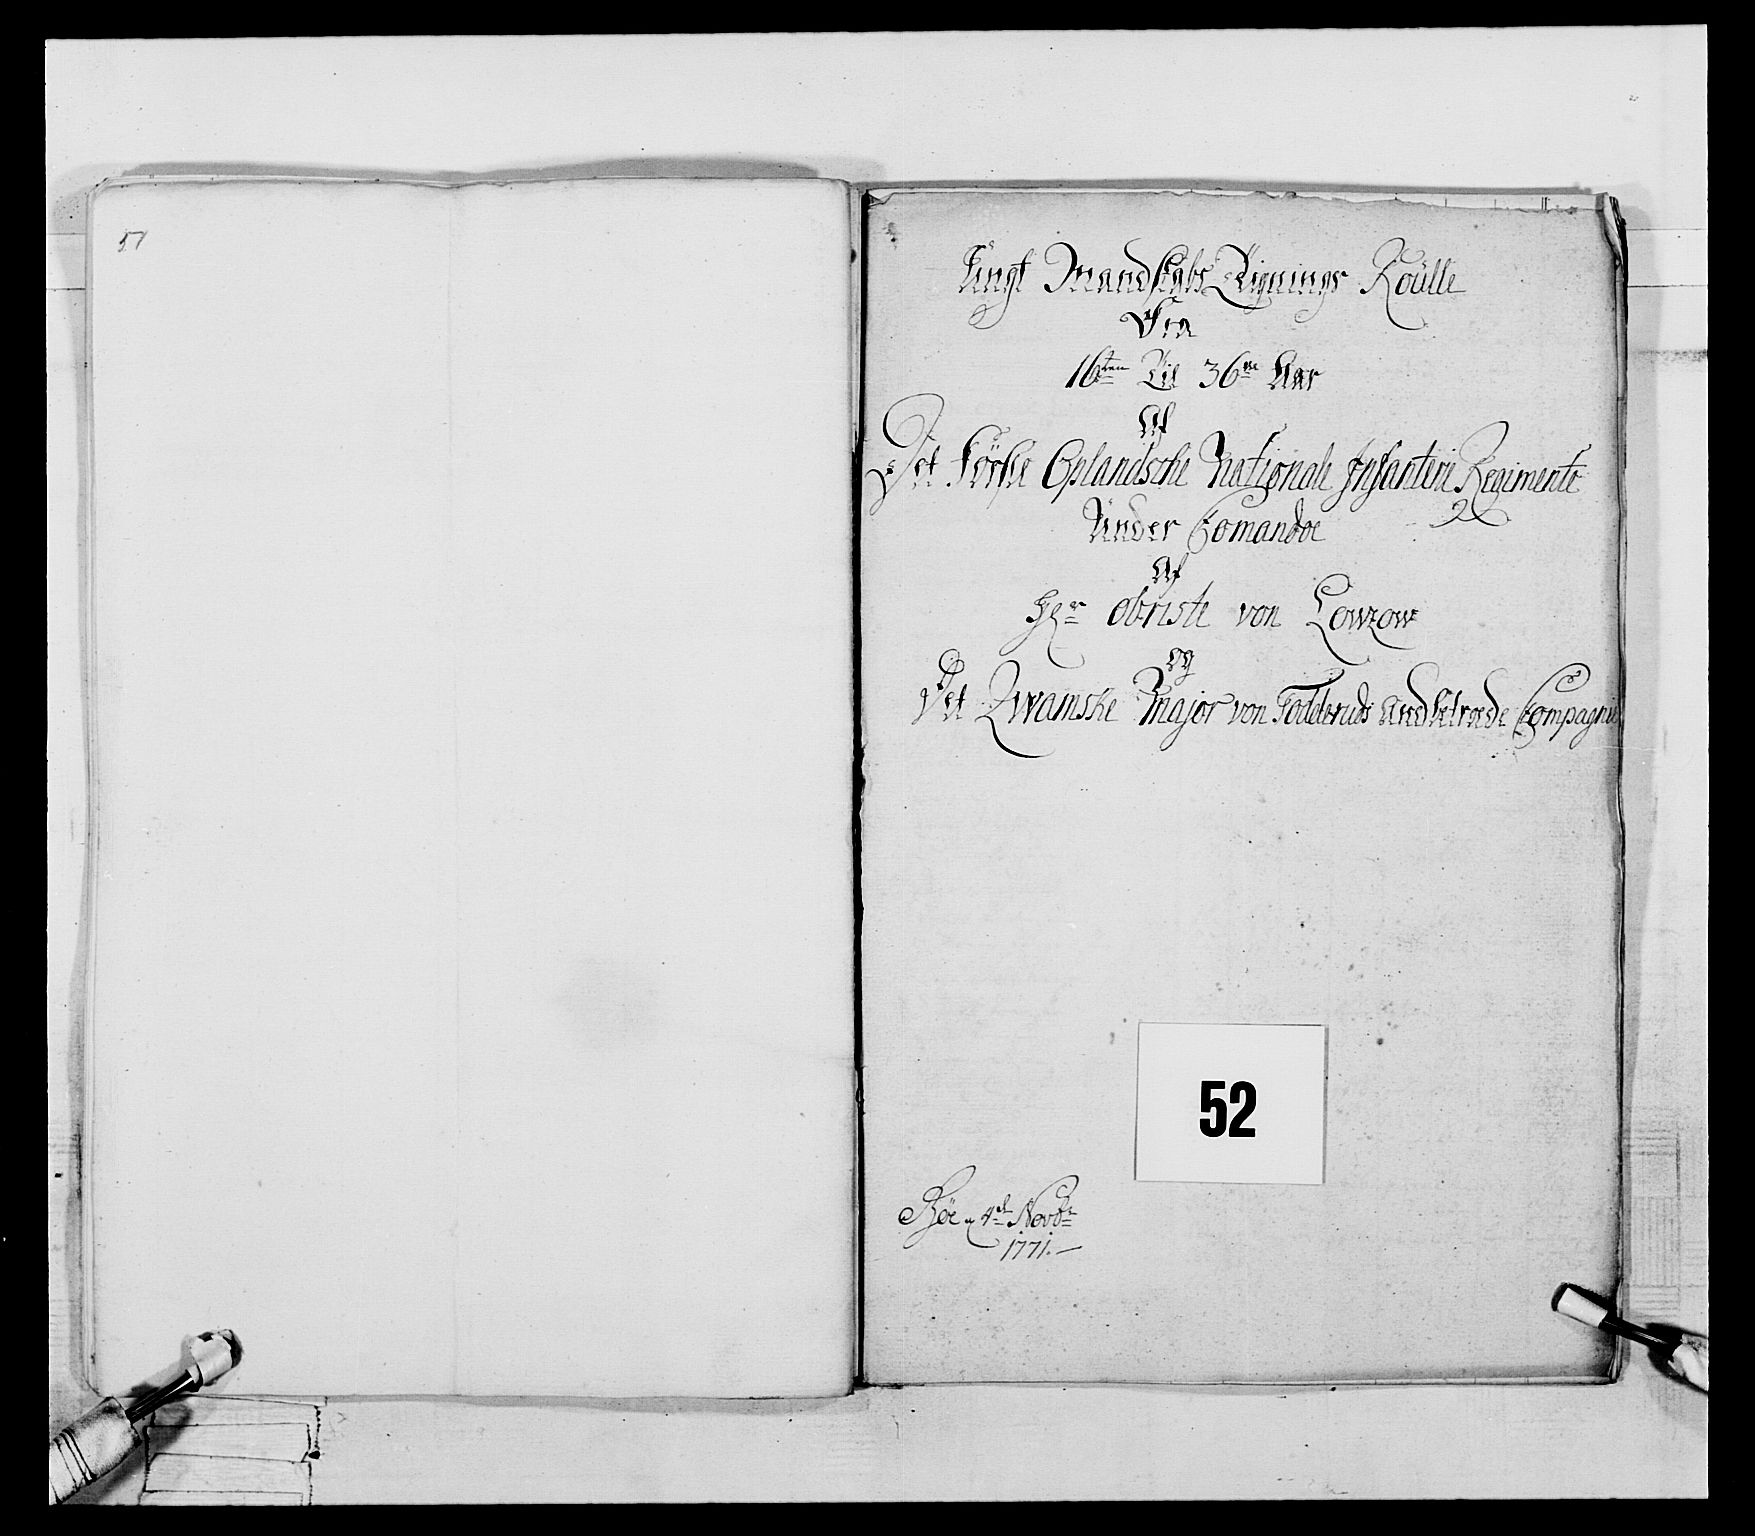 51
Ungt Mandskabs Lignings Roülle
Fra
16ten Til 36te Aar
Af
Det Første Oplandsche Nationale Infanterie Regimente
Under Comandoe
Af
Hr Obriste von Lowzow
Og
Det Qwamske Major von Todderuds Compagnie
52
Bøe 4de Novbr
1771.